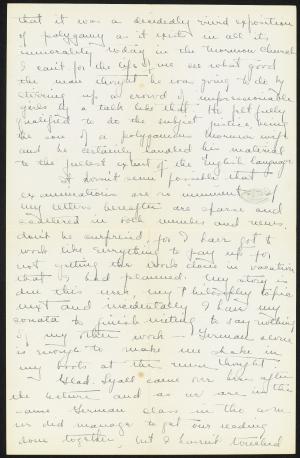 that it was a decidedly vivid exposition
of polygamy as it exists in all its
immorality today in the Mormon Church.
I can't for the life of me see what good
the man thought he was going to do by
stirring up a crowd of impressionable
girls by a talk like that. He felt fully
qualified to do the subject justice being
the son of a polygamous Mormon wife
and he certainly handled his material
to the fullest extent of the English language.
It doesn't seem possible that
examinations are so imminent. If
my letters hereafter are sparse and
scattered in both number and news,
don't be surprised, for I have got to
work like everything to pay up for
not getting the work done in vacation
that I had planned. My story is
due this week, my Philosophy topic
next and incidentally I have my
sonata to finish writing to say nothing
of my other work — German alone
is enough to make me shake in
my boots at the mere thought.
Glad. Lyall came over here after
the lecture and as we are in the
same German class in the
we did manage to get our reading
done together, but I haven't touched